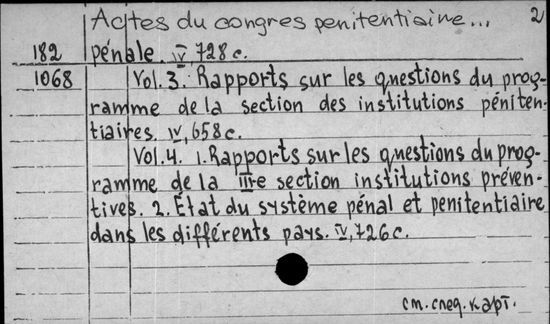 Actes du congres penitentiaire... 2
182 pénale. V, 728 c.
1068 Vol. 3. Rapports sur les questions du prog-
ramme de la section des institutions péniten-
tiaires. IV, 658 c.
Vol. 4. 1. Rapports sur les questions du prog-
ramme de la III-e section institutions préven-
tives. 2. État du système pénal et penitentiaire
dans les différents pays. IV, 726 c.
см. след. карт.